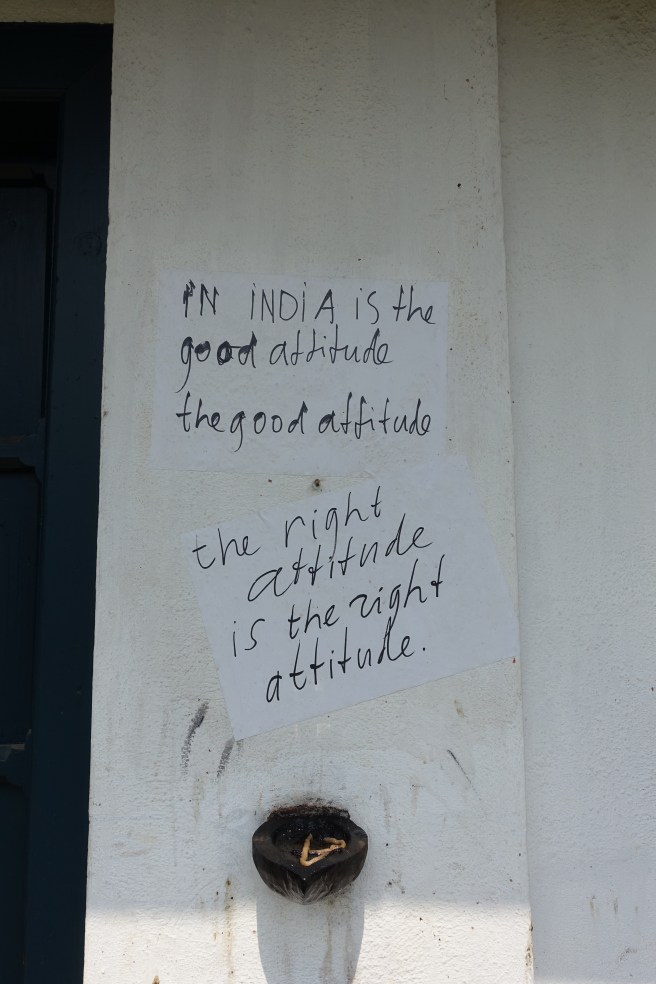 iN iNDiA iS the
good attitude
the good attitude
the right
attitude
is the right
attitude.